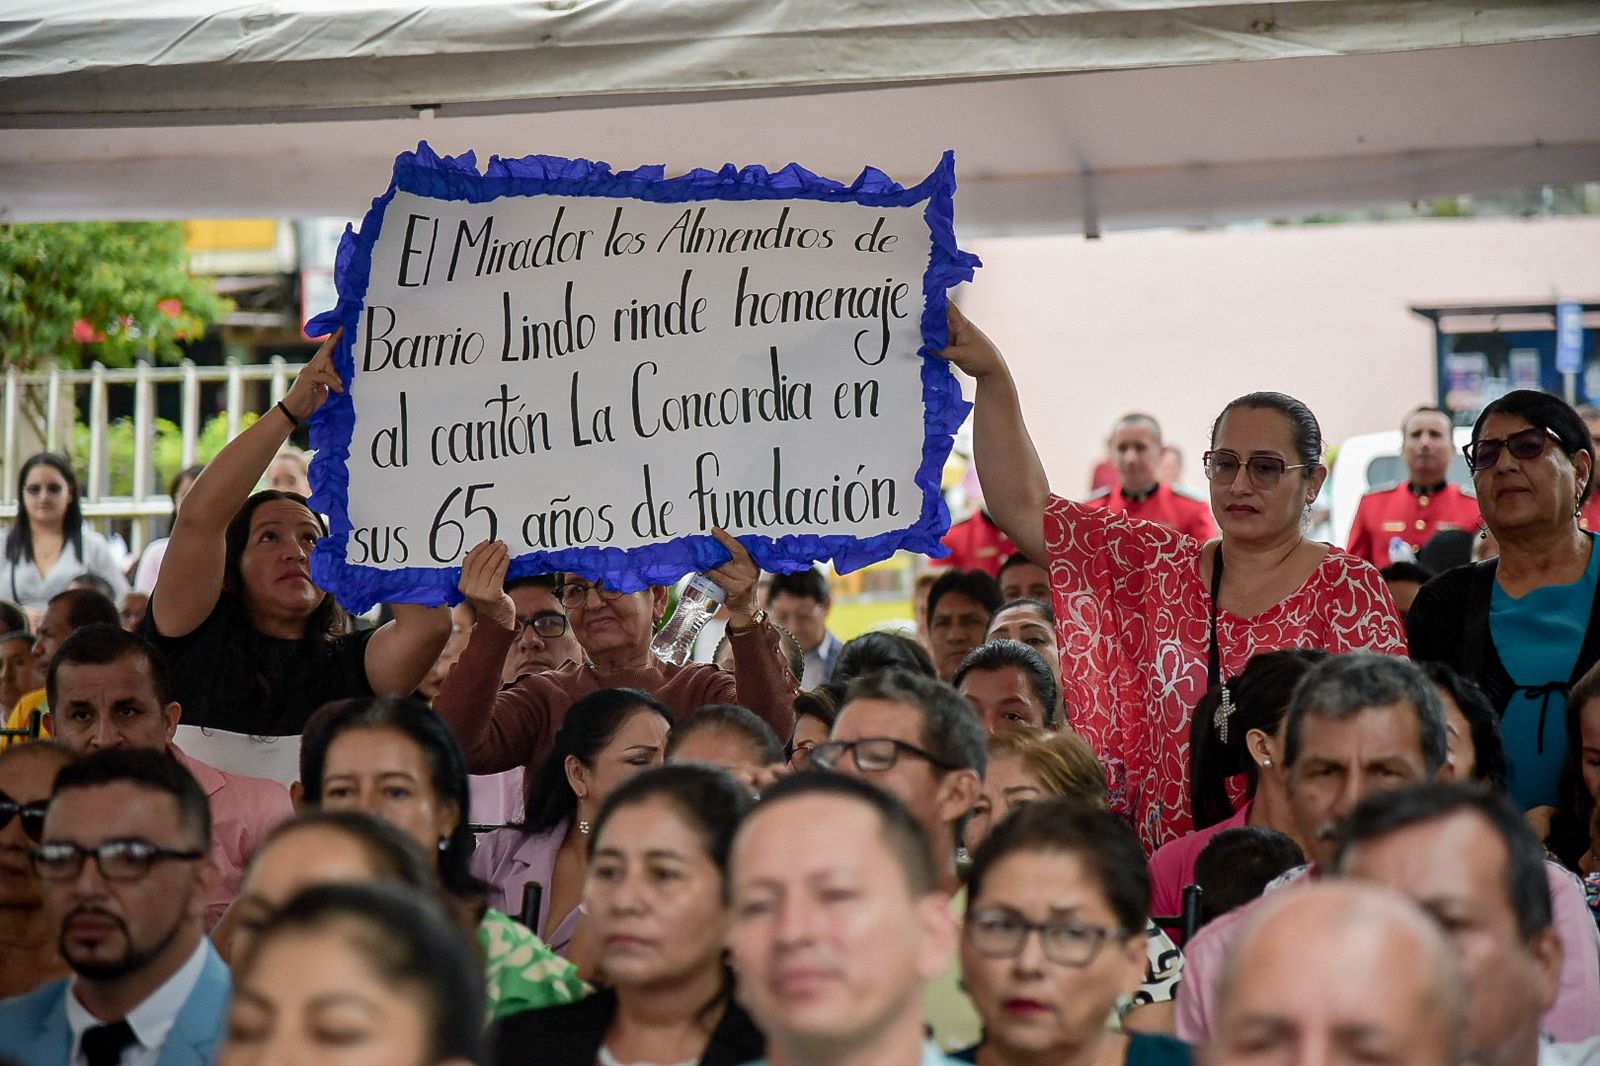 El Mirador los Almendros de
Barrio Lindo rinde homenaje
al cantón La Concordia en
sus 65 años de fundación